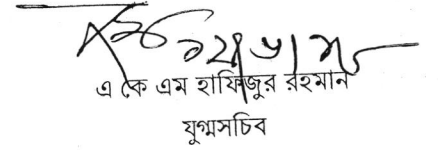 এ কে এম হাফিজুর রহমান
যুগ্মসচিব